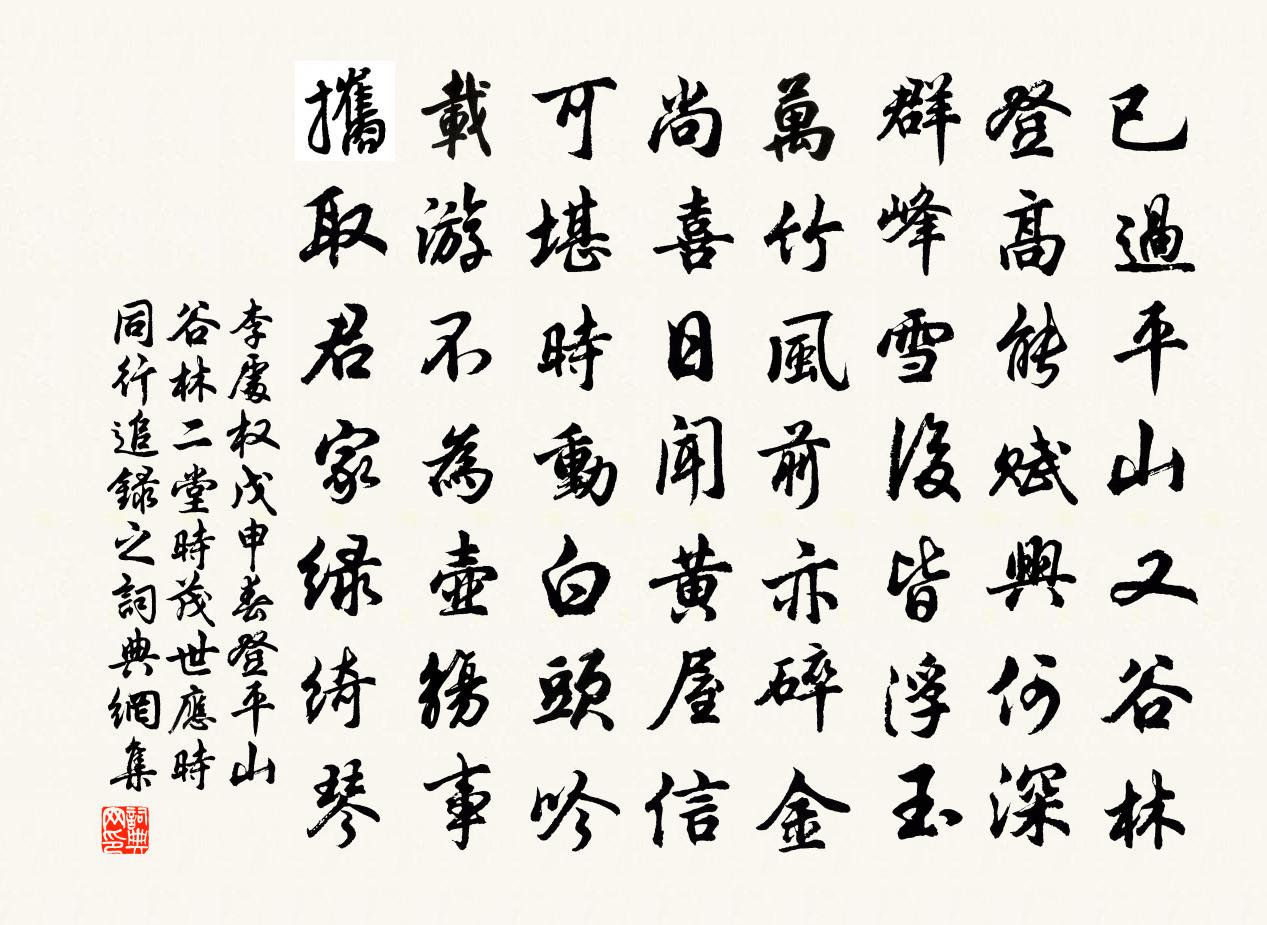 已過平山又谷林
登高能賦興何深
群峰雪後皆浮玉
萬竹風前亦碎金
尚喜日聞黃屋信
可堪時動白頭吟
載游不為壺觴事
攜取君家綠綺琴
李處权戊申春登平山
谷林二堂時茂世應時
同行追錄之詞典網集
詞典網印